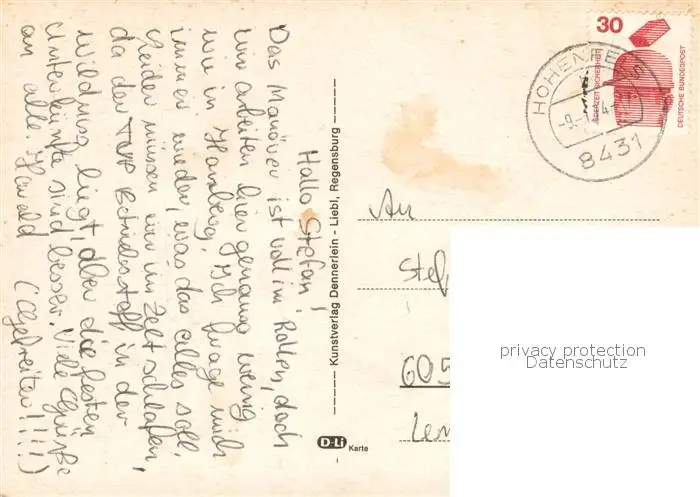 Hallo Stefan!
Das Manöver ist voll im Rollen, doch
wir arbeiten hier genauso wenig
wie in Homberg. Ich frage mich
immer wieder, was das alles soll.
Leider müssen wir im Zelt schlafen,
da der TVP Betriebsstoff in der
Wildnis liegt, aber die festen
Unterkünfte sind besser. Viele Grüße
an alle. Harald (Gefreiter!!!!)
Kunstverlag Dennerlein - Liebl, Regensburg
D-Li Karte
30
JEDERZEIT SICHERHEIT
DEUTSCHE BUNDESPOST
HOHENFELS
8431
An
Stef
605
privacy protection
Datenschutz